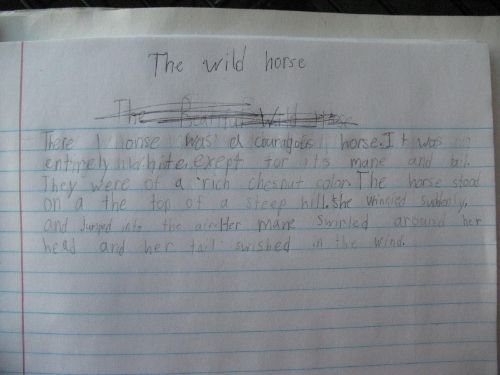 The wild horse
The Beautiful Wild Horse
There 1 onse was a couragous horse. It was
entirely white, exept for its mane and tail.
They were of a rich chesnut color. The horse stood
on a the top of a steep hill. She whinnied suddenly,
and jumped into the air. Her mane swirled around her
head and her tail swished in the wind.